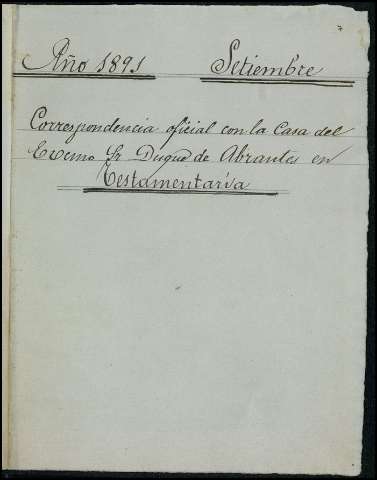 Año 1891 Setiembre
Correspondencia oficial con la Casa del
Excmo Sr Duque de Abrantes en
Testamentaría